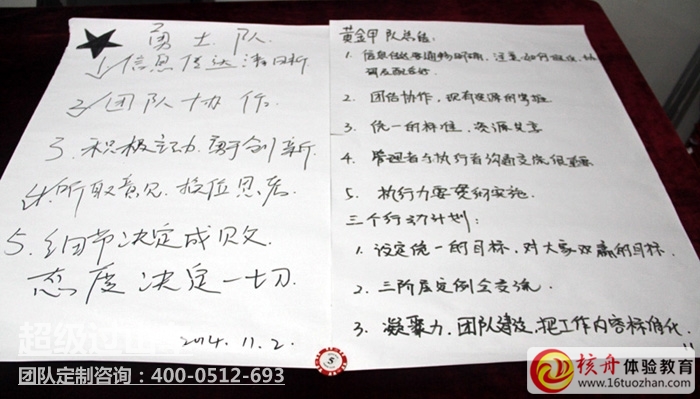 勇士队
1、信息传达清晰
2、团队协作
3、积极主动,勇于创新
4、听取意见、换位思考
5、细节决定成败
态度决定一切
2014.11.2.
黄金甲队总结:
1. 信息
2. 团结协作,现有资源的
3. 统一的标准,资源共享
4. 管理者与执行者沟通交流很重要
5. 执行力要贯彻实施
三个行动计划:
1. 设定统一的目标,对大家双赢的目标.
2. 三阶层定例会交流.
3. 凝聚力,团队建设,把工作内容标准化
团队定制咨询:400-0512-693
S
核舟体验教育
www.16tuozhan.com